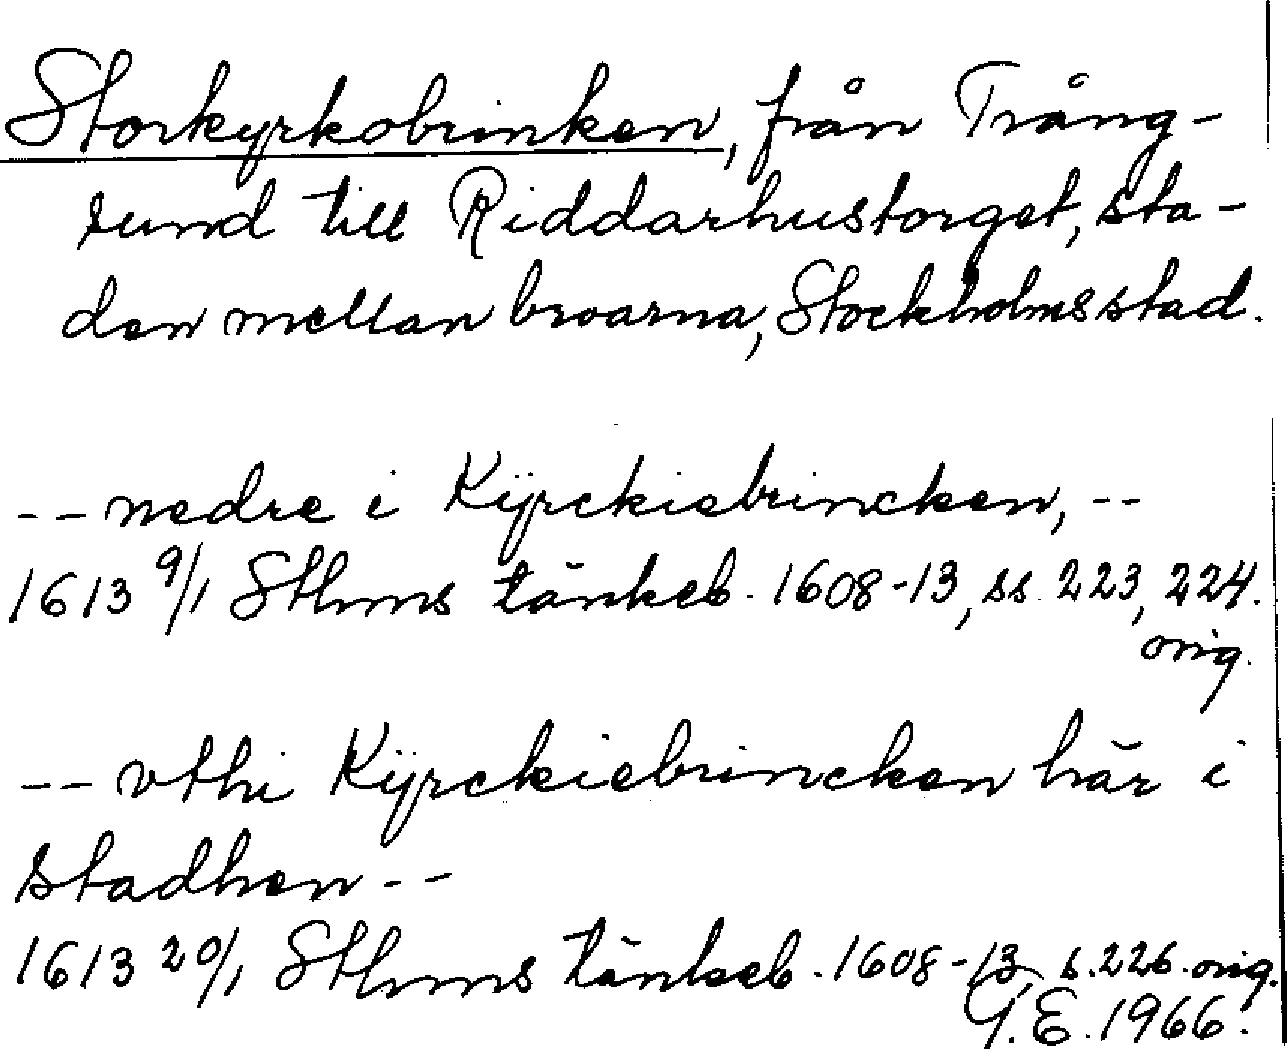 Storkyrkobrinken, från Trång-
sund till Riddarhustorget, sta-
den mellan broarna, Stockholms stad.
-- nedre i Kÿrckiebrincken, --
1613 9/1 Sthms tänkeb. 1608-13, ss. 223, 224.
orig.
-- vthi Kÿrckiebrincken här i
stadhen --
1613 20/1 Sthms tänkeb. 1608-13, s. 226. orig.
G. E. 1966.